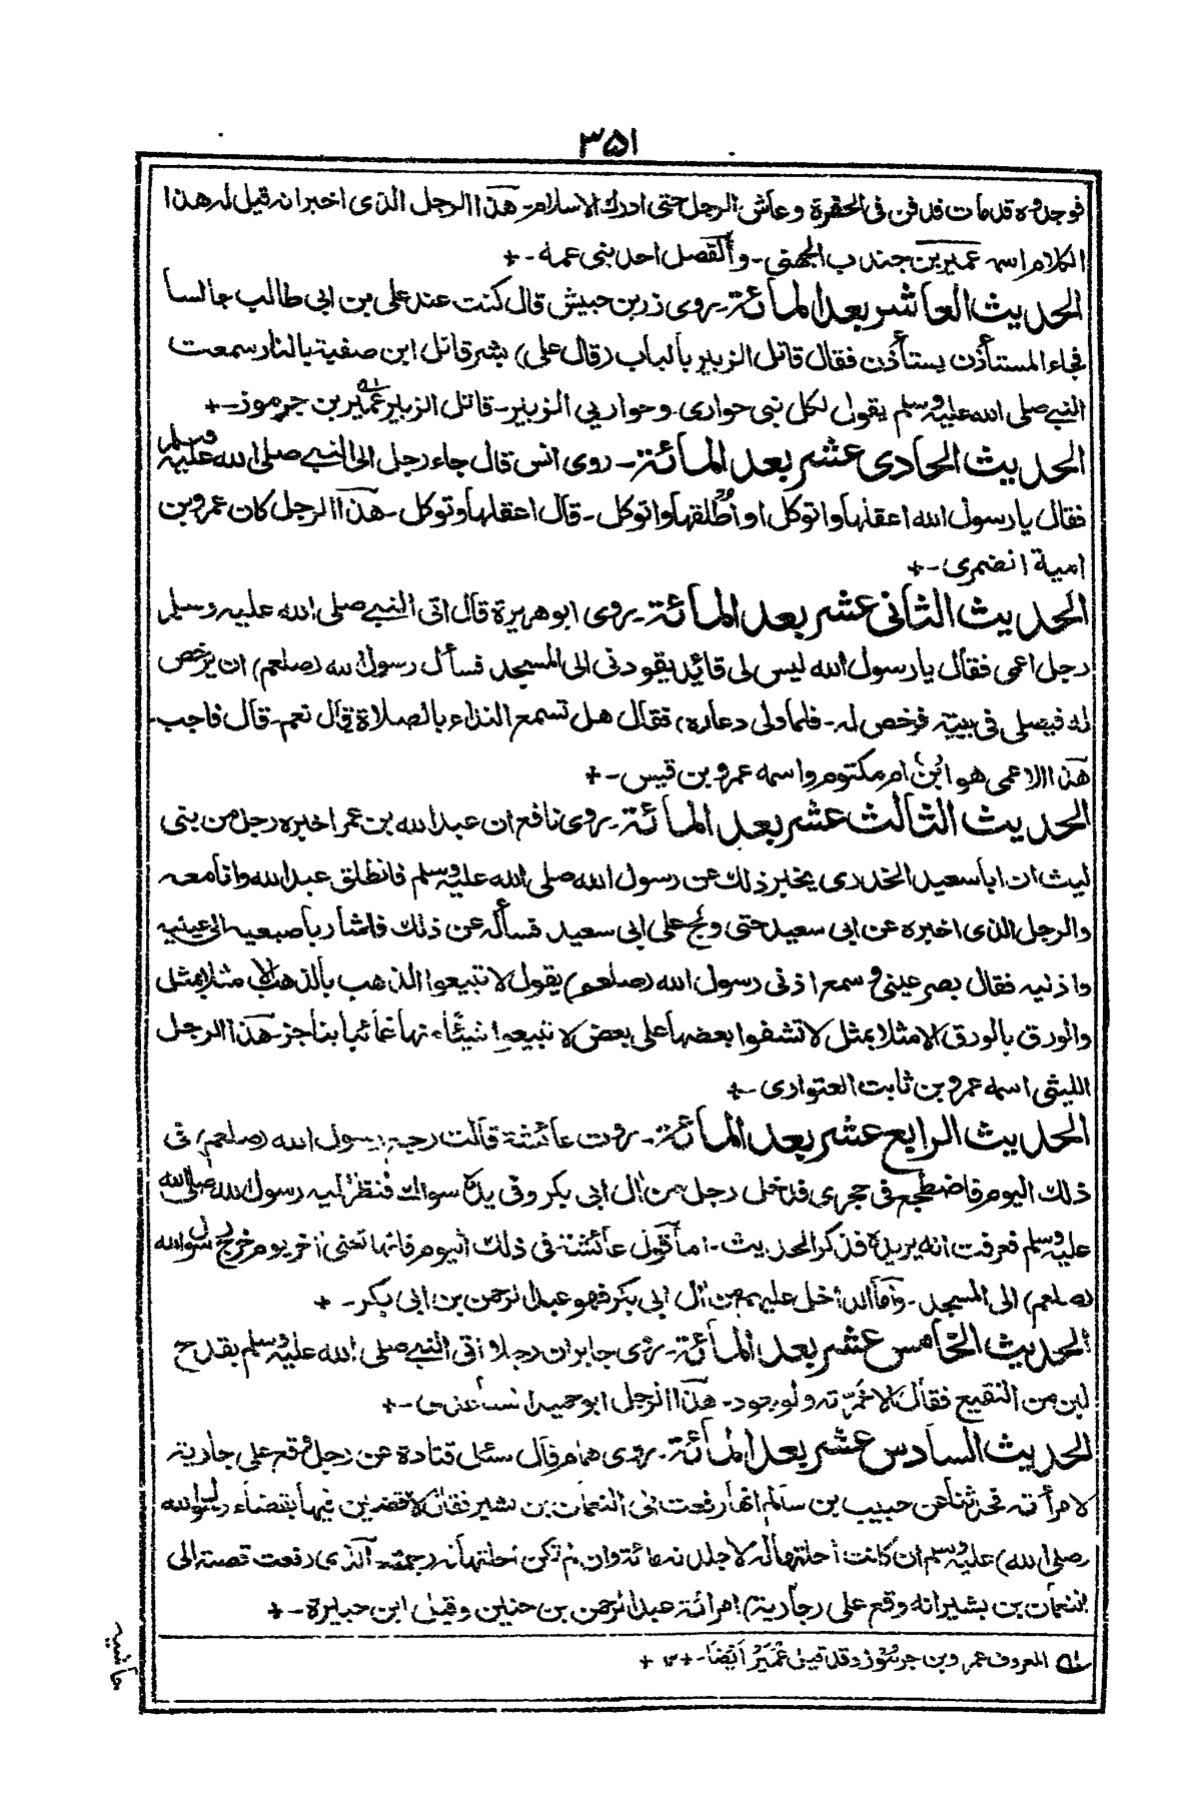 ٣٥١
فوجدوه قد مات فدفن فى الحفرة وعاش الرجل حتى ادرك الاسلام۔ هذا الرجل الذى اخبر انه قيل له هذا
الكلام اسمه عمير بن جندب الجهنى۔ والقصل احد بنى عمه۔+
الحديث العاشر بعد المائة۔ يروى زر بن حبيش قال كنت عند على بن ابى طالب جالسا
فجاء المستأذن يستأذن فقال قاتل الزبير بالباب (قال على) بشر قاتل ابن صفية بالنار سمعت
النبى صلى الله عليه وسلم يقول لكل نبى حوارى۔ وحواريى الزبير۔ قاتل الزبير عمير بن جرموز۔+
الحديث الحادى عشر بعد المائة۔ روى انس قال جاء رجل الى النبى صلى الله عليه وسلم
فقال يا رسول الله اعقلها واتوكل او اطلقها واتوكل۔ قال اعقلها وتوكل۔ هذا الرجل كان عمرو بن
امية الضمرى۔+
الحديث الثانى عشر بعد المائة۔ يروى ابو هريرة قال اتى النبى صلى الله عليه وسلم
رجل اعمى فقال يا رسول الله ليس لى قائد يقودنى الى المسجد فسأل رسول الله (صلعم) ان يرخص
له فيصلى فى بيته فرخص له۔ فلما ولى دعاه، فقال هل تسمع النداء بالصلاة قال نعم۔ قال فاجب
هذا الاعمى هو ابن ام مكتوم واسمه عمرو بن قيس۔+
الحديث الثالث عشر بعد المائة۔ يروى نافع ان عبد الله بن عمر اخبره رجل من بنى
ليث ان ابا سعيد الخدرى يخبر ذلك عن رسول الله صلى الله عليه وسلم فانطلق عبد الله وانا معه
والرجل الذى اخبره عن ابى سعيد حتى ولج على ابى سعيد فسأله عن ذلك فاشار باصبعيه الى عينيه
واذنيه فقال بصر عينى وسمع اذنى رسول الله (صلعم) يقول لا تبيعوا الذهب بالذهب الا مثلا بمثل
والورق بالورق الا مثلا بمثل لا تشفوا بعضها على بعض لا تبيعوا شيئا منها غائبا بناجز۔ هذا الرجل
الليثى اسمه عمرو بن ثابت العتوارى۔+
الحديث الرابع عشر بعد المائة۔ روت عائشة قالت رجع رسول الله (صلعم) فى
ذلك اليوم فاضطجع فى حجرى فدخل رجل من ال ابى بكر وفى يده سواك فنظر اليه رسول الله صلى الله
عليه وسلم فعرفت انه يريده فذكر الحديث۔ اما قول عائشة فى ذلك اليوم فانها تعنى اخر يوم خرج رسول الله
(صلعم) الى المسجد۔ واما الداخل عليهم من ال ابى بكر فهو عبد الرحمن بن ابى بكر۔+
الحديث الخامس عشر بعد المائة۔ روى جابر ان رجلا اتى النبى صلى الله عليه وسلم بقدح
لبن من النقيع فقال الا خمرته ولو بعود۔ هذا الرجل ابو حميد الساعدى۔+
الحديث السادس عشر بعد المائة۔ يروى همام قال سئل قتادة عن رجل وقع على جارية
لامرأته فحدثنا عن حبيب بن سالم انها رفعت الى النعمان بن بشير فقال لاقضين فيها بقضاء رسول الله
(صلى الله) عليه وسلم ان كانت احلتها له لاجلدنه مائة وان لم تكن احلتها له رجمته۔ الذى رفعت قصته الى
النعمان بن بشير انه وقع على (جارية) امرائة عبد الرحمن بن حنين وقيل ابن حبيرة۔+
له المعروف عمرو بن جرموز وقد قيل عمير ايضا۔+١٢+
حاشيه